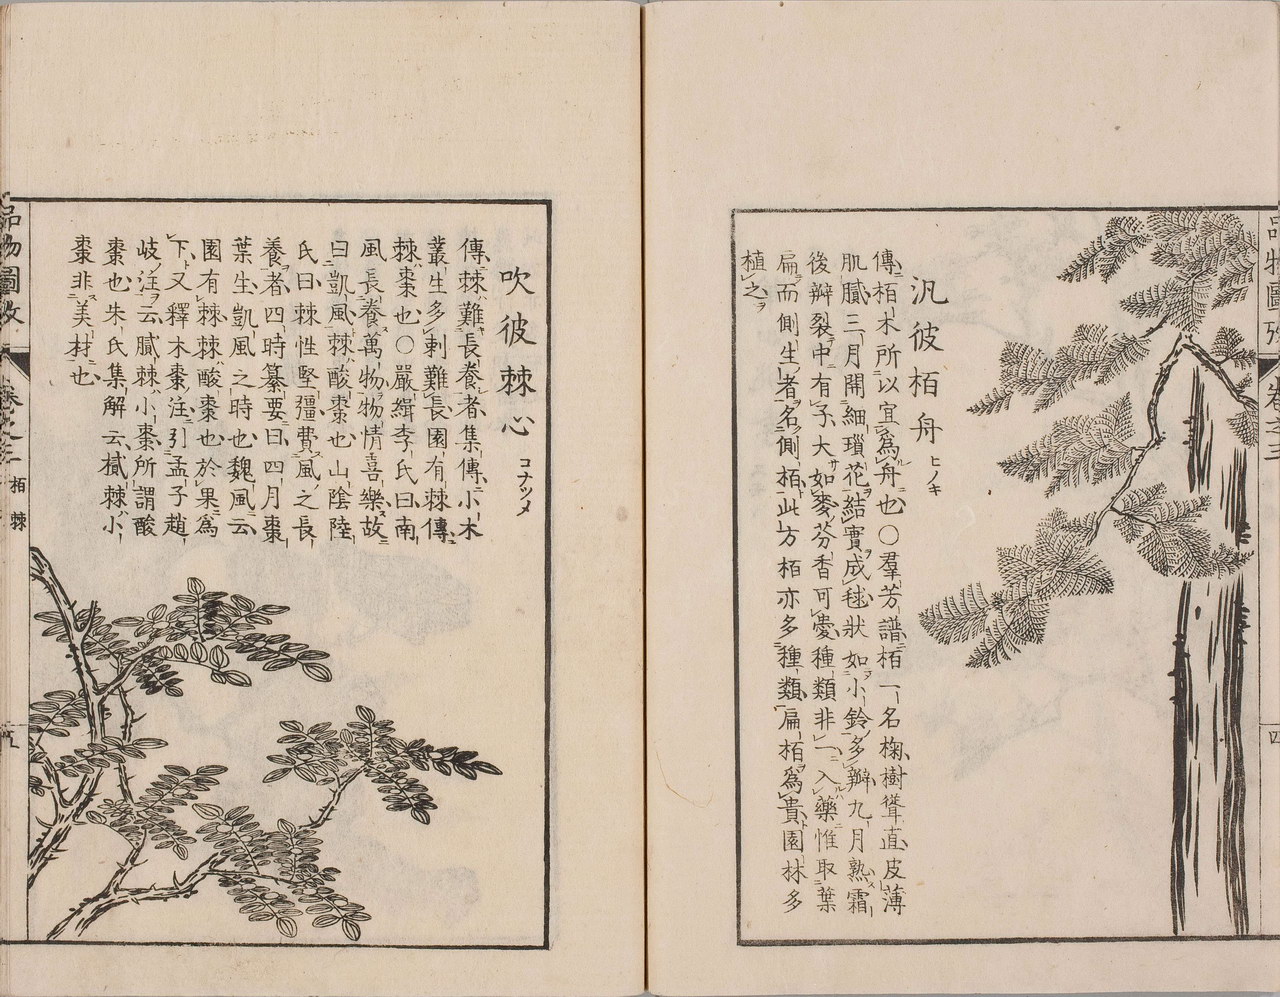 品物圖攷
卷之三
四
汎彼栢舟 ヒノキ
傳栢木所以宜為舟也○羣芳譜栢一名椈樹聳直皮薄
肌膩三月開細瑣花結實成毬狀如小鈴多瓣九月熟霜
後瓣裂中有子大如麥芬香可愛種類非一入藥惟取葉
扁而側生者名側栢此方栢亦多種類扁栢為貴園林多
植之
吹彼棘心 コナツメ
傳棘難長養者集傳小木
叢生多刺難長園有棘傳
棘棗也○嚴緝李氏曰南
風長養萬物物情喜樂故
曰凱風棘酸棗也山陰陸
氏曰棘性堅彊費風之長
養者四時纂要曰四月棗
葉生凱風之時也魏風云
園有棘棘酸棗也於果為
下又釋木棗注引孟子趙
岐注云膩棘小棗所謂酸
棗也朱氏集解云樲棘小
棗非美材也
品物圖攷
卷之三
栢 棘